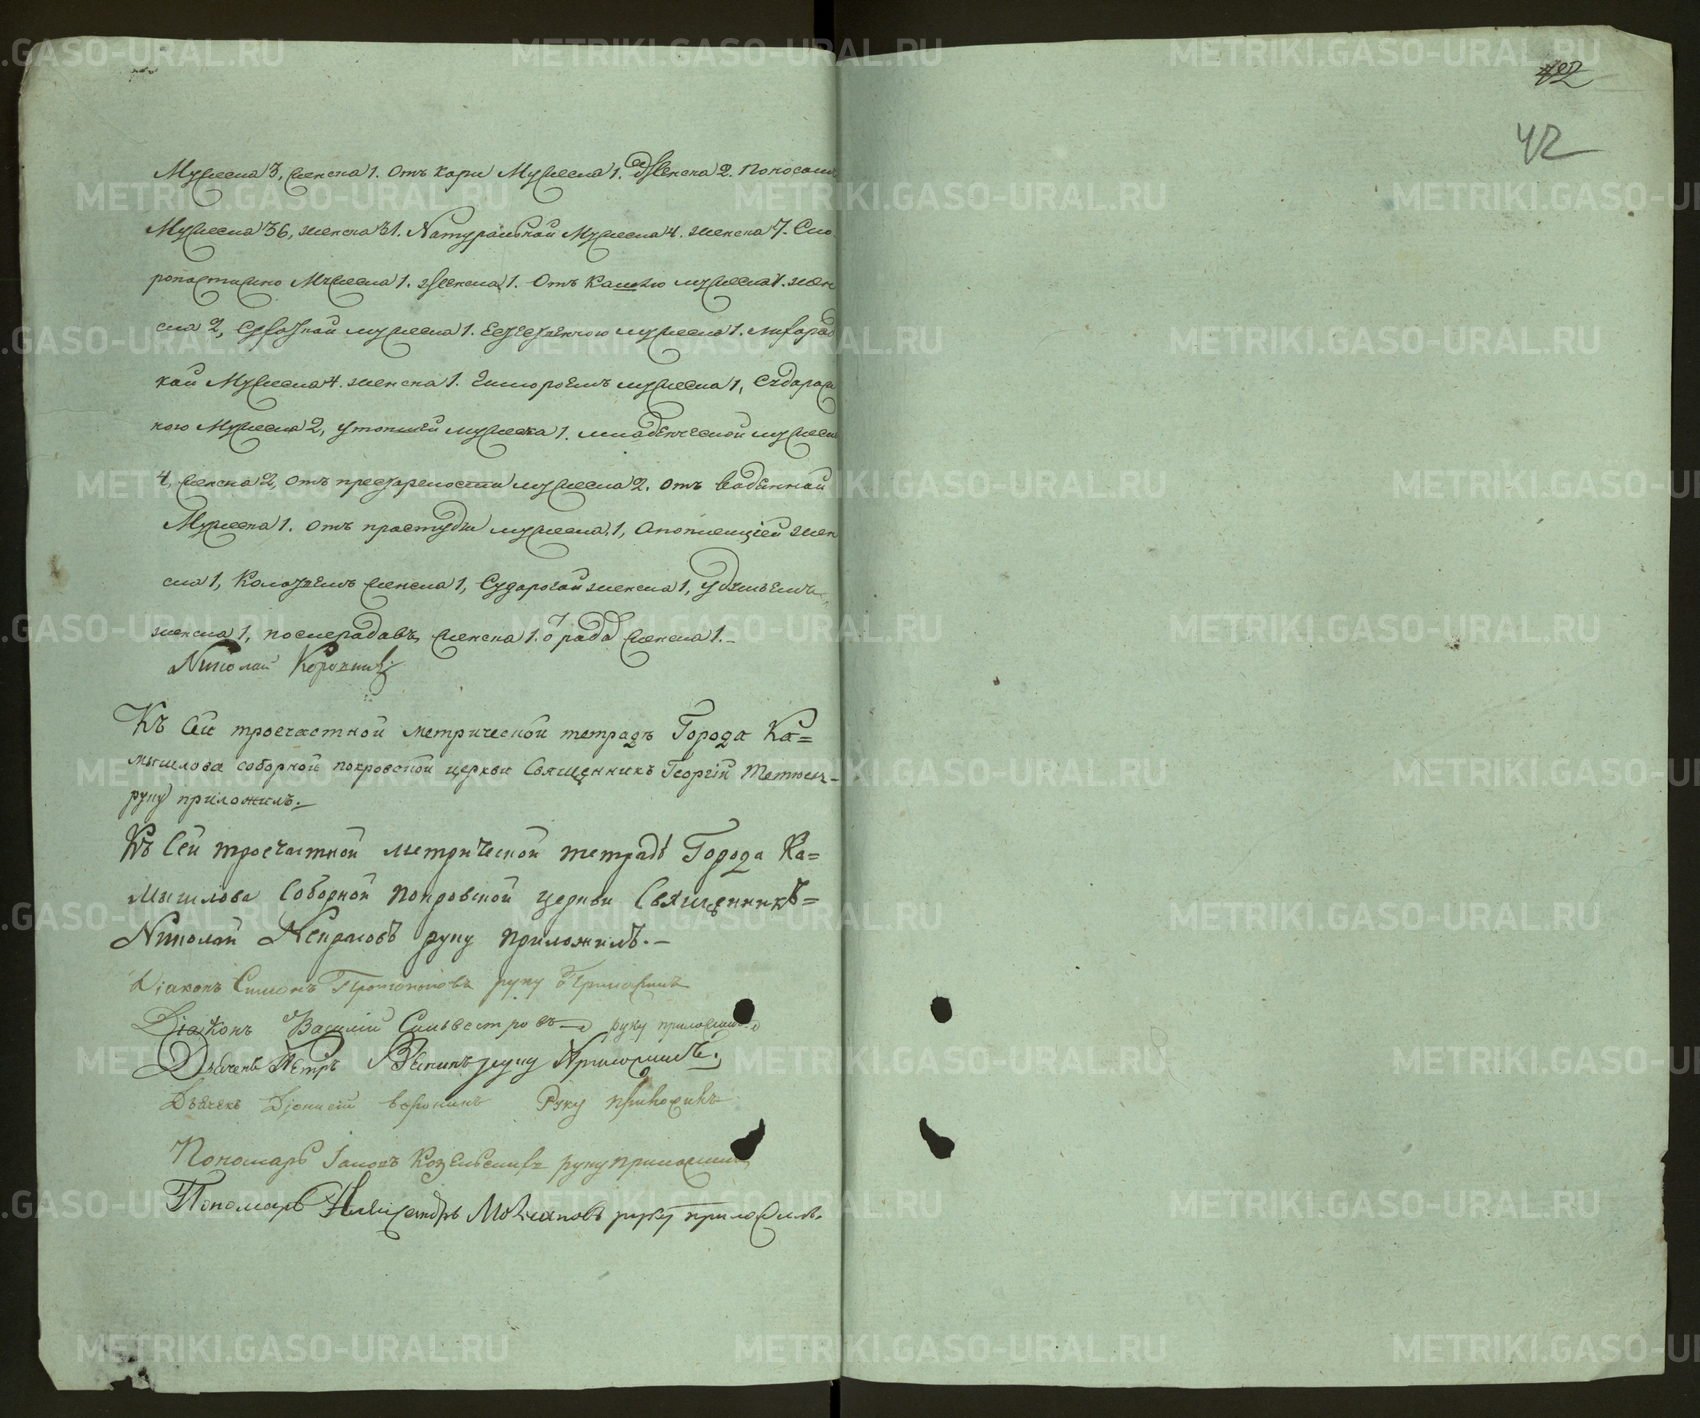 Мужеска 3, женска 1. Отъ кори Мужеска 1. женска 2. Поносомъ
Мужеска 36, женска 31. Натуральной Мужеска 4. женска 7. Ско
ропостижно Мужеска 1. женска 1. Отъ кашлю мужеска 1. жен
ска 2, мужеска 1. мужеска 1. лихорад
кой Мужеска 4. женска 1. мужеска 1,
ною Мужеска 2, утопшей мужеска 1. младенческой мужеска
4, женска 2, отъ престарелости мужеска 2. отъ
Мужеска 1. отъ простуды мужеска 1, жен
ска 1, Колотьемъ женска 1, Сударогой женска 1,
женска 1, послеродавъ женска 1. женска 1.
Николай
Къ сей троечастной метрической тетрадѣ Города Ка=
мышлова соборной покровской церкви Священникъ Георгій
руку приложилъ.
Къ Сей троечастной метрической тетрадѣ Города Ка=
мышлова Соборной Покровской церкви Священникъ=
Николай Некрасовъ руку приложилъ.
Діаконъ Симонъ Протопоповъ руку приложилъ
Діаконъ Василій Сильвестровъ руку приложилъ
Дьячекъ Петръ руку приложилъ.
Дьячекъ Діонисій воронинъ Руку приложилъ
Пономарь руку приложилъ
Пономарь Александръ Молчановъ руку приложилъ.
402
42
METRIKI.GASO-URAL.RU